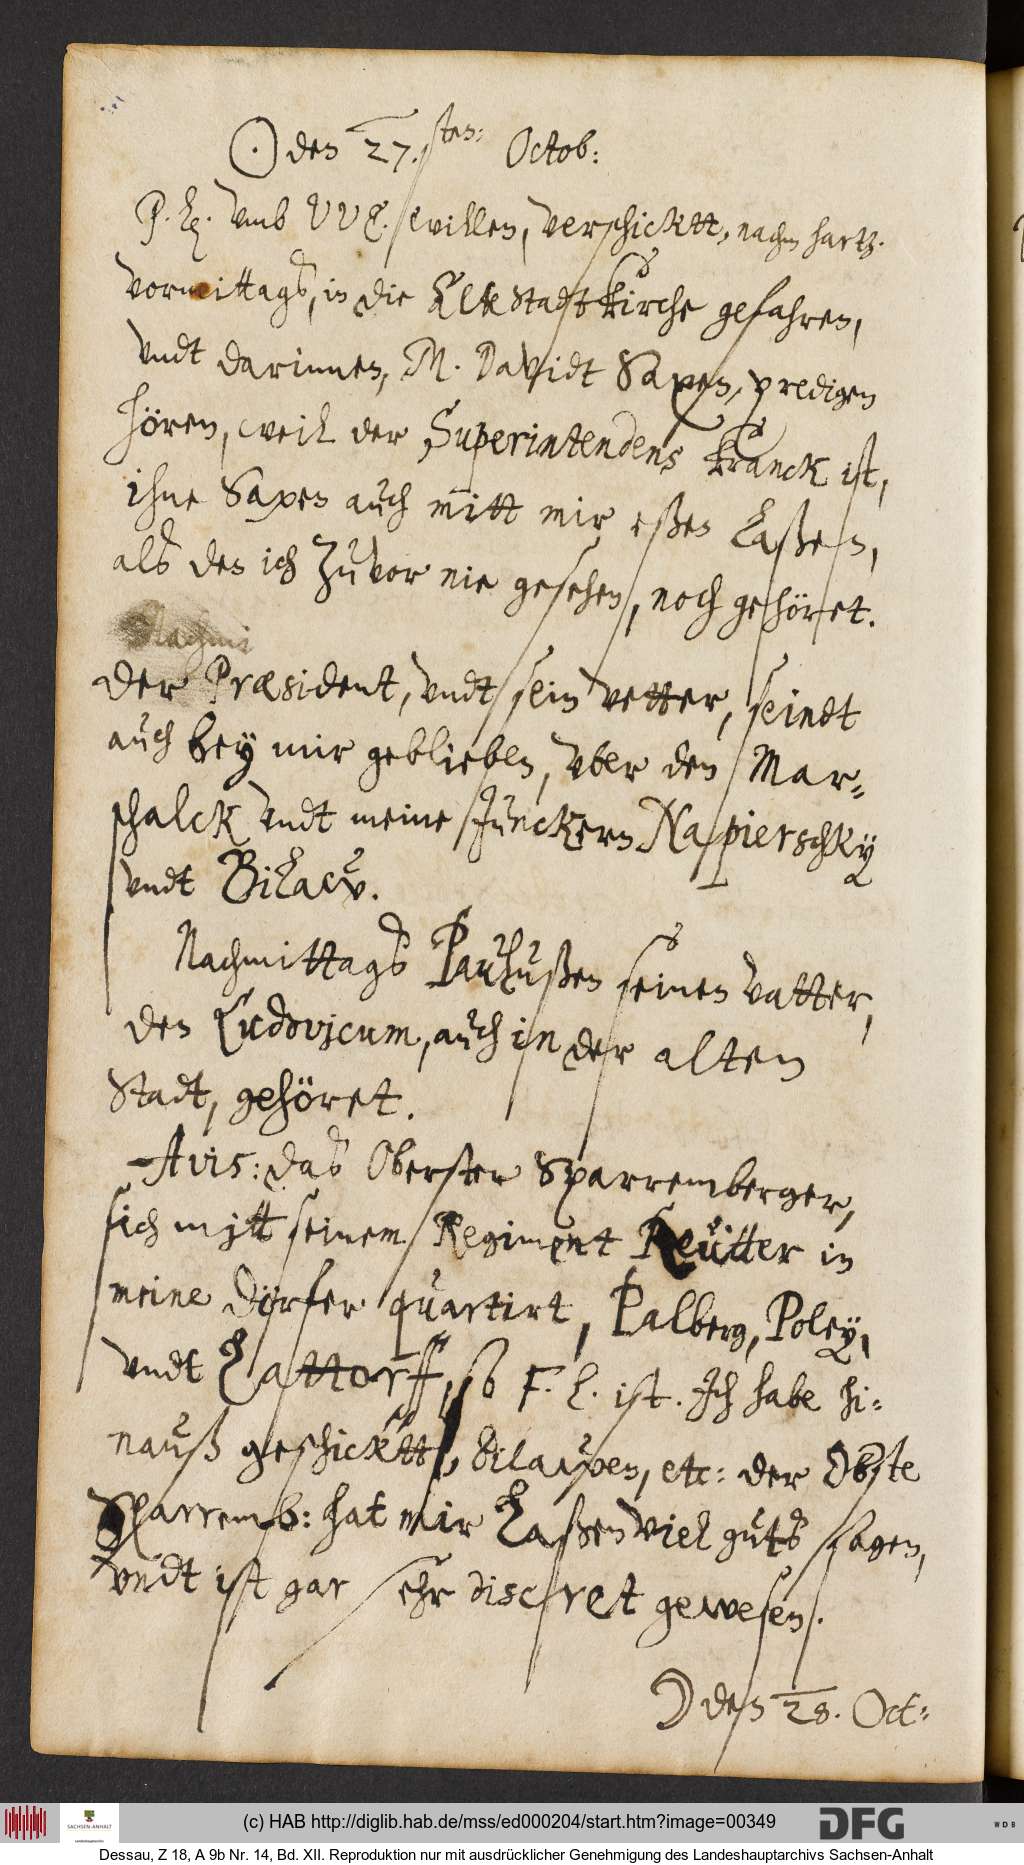 ☉ den 27.sten: Octob:
P. Lz. vmb VVE. willen, verschicktt, nachm hartz.
Vormittags, in die Alte Stadtkirche gefahren,
vndt darinnen, M. Davidt Saxen, predigen
hören, weil der Superintendens kranck ist,
ihne Saxen auch mitt mir eßen laßen,
alß den ich zuvor nie gesehen, noch gehöret.
Nachmi
Der Præsident, vndt sein vetter, seindt
auch bey mir geblieben, vber den Mar¬
schalck vndt meine Junckern Napierschky
vndt Bilaw.
Nachmittags Paulußen seinen vatter,
den Ludovicum, auch in der alten
Stadt, gehöret.
Avis: das Oberster Sparremberger,
sich mitt seinem Regiment Reütter in
meine dörfer quartirt, Palberg, Poley,
vndt Lattorff, so F. L. ist. Ich habe hi¬
nauß geschicktt, Bilawen, etc: der Obste
Sparremb: hat mir laßen viel guts sagen,
vndt ist gar sehr discret gewesen.
☽ den 28. Oct:
(c) HAB http://diglib.hab.de/mss/ed000204/start.htm?image=00349
SACHSEN-ANHALT
DFG
WDB
Dessau, Z 18, A 9b Nr. 14, Bd. XII. Reproduktion nur mit ausdrücklicher Genehmigung des Landeshauptarchivs Sachsen-Anhalt